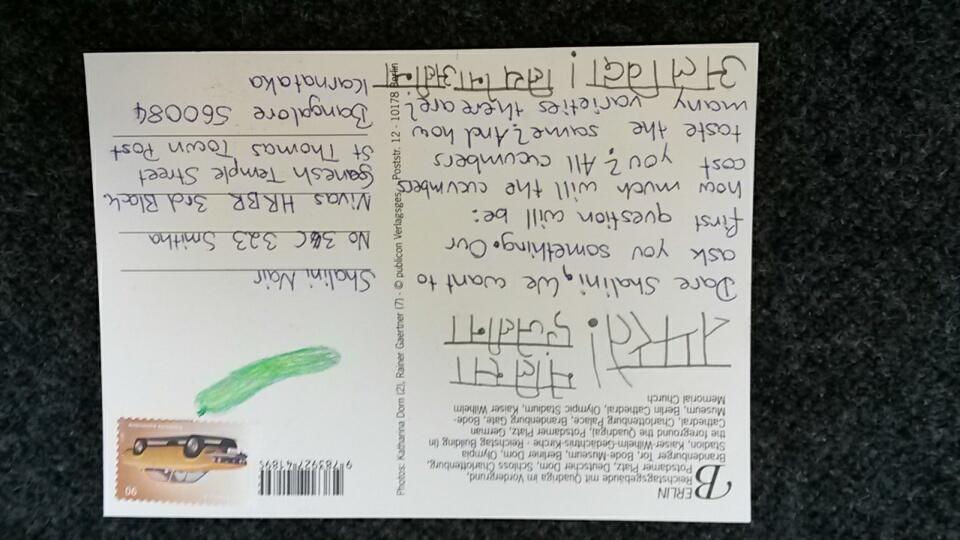 BERLIN
Reichstagsgebäude mit Quadriga im Vordergrund,
Potsdamer Platz, Deutscher Dom, Schloss Charlottenburg,
Brandenburger Tor, Bode-Museum, Berliner Dom, Olympia
Stadion, Kaiser-Wilhelm-Gedächtnis-Kirche · Reichstag Building (in
the foreground the Quadriga), Potsdamer Platz, German
Cathedral, Charlottenburg Palace, Brandenburg Gate, Bode-
Museum, Berlin Cathedral, Olympic Stadium, Kaiser Wilhelm
Memorial Church
नमस्ते!
Dare Shalini, We want to
ask you something. Our
first question will be:
how much will the cucumbers
cost you? All cucumbers
taste the same? And how
many varieties there are?
अलविदा!
Photos: Katharina Dorn (2), Rainer Gaertner (7) · © publicon Verlagsges., Poststr. 12 - 10178 Berlin
9783927441895
90
Shalini Nair
No 323 Smitha
Nivas HRBR 3rd Block
Ganesh Temple Street
St Thomas Town Post
Bangalore 560084
Karnataka